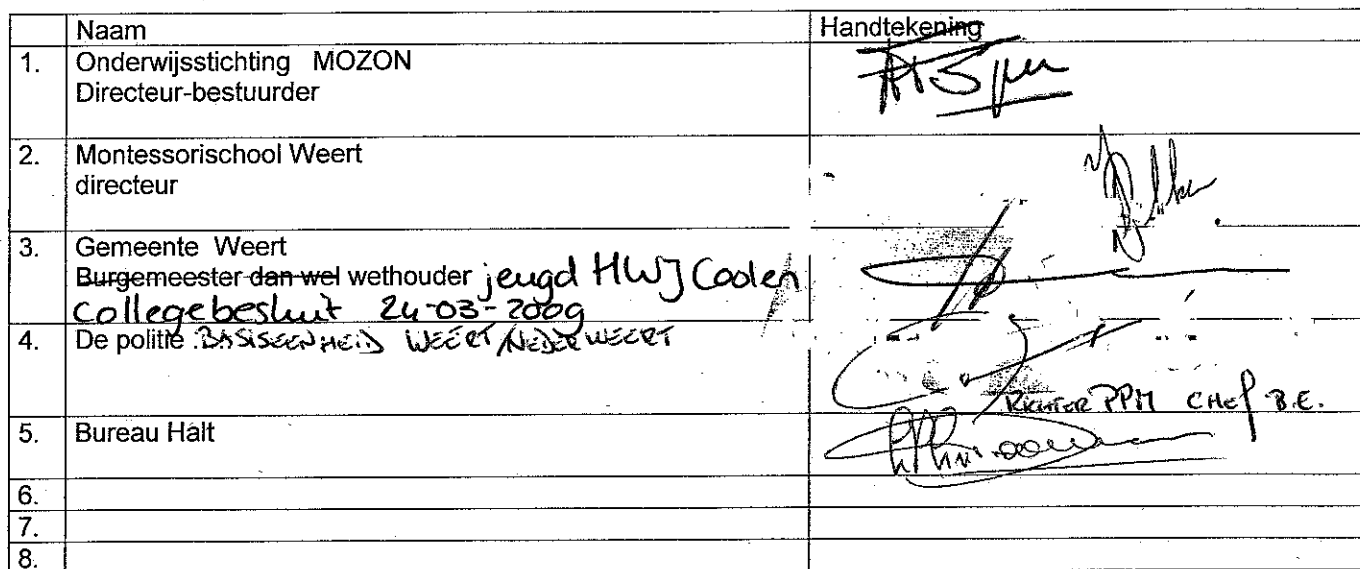 Naam Handtekening
1. Onderwijsstichting MOZON
Directeur-bestuurder
2. Montessorischool Weert
directeur
3. Gemeente Weert
Burgemeester dan wel wethouder jeugd HWJ Coolen
Collegebesluit 24-03-2009
4. De politie BASISEENHEID WEERT/NEDERWEERT
RICHTER PPM CHEF B.E.
5. Bureau Halt
6.
7.
8.